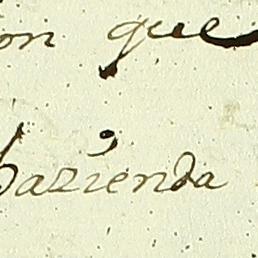 on que
hazienda